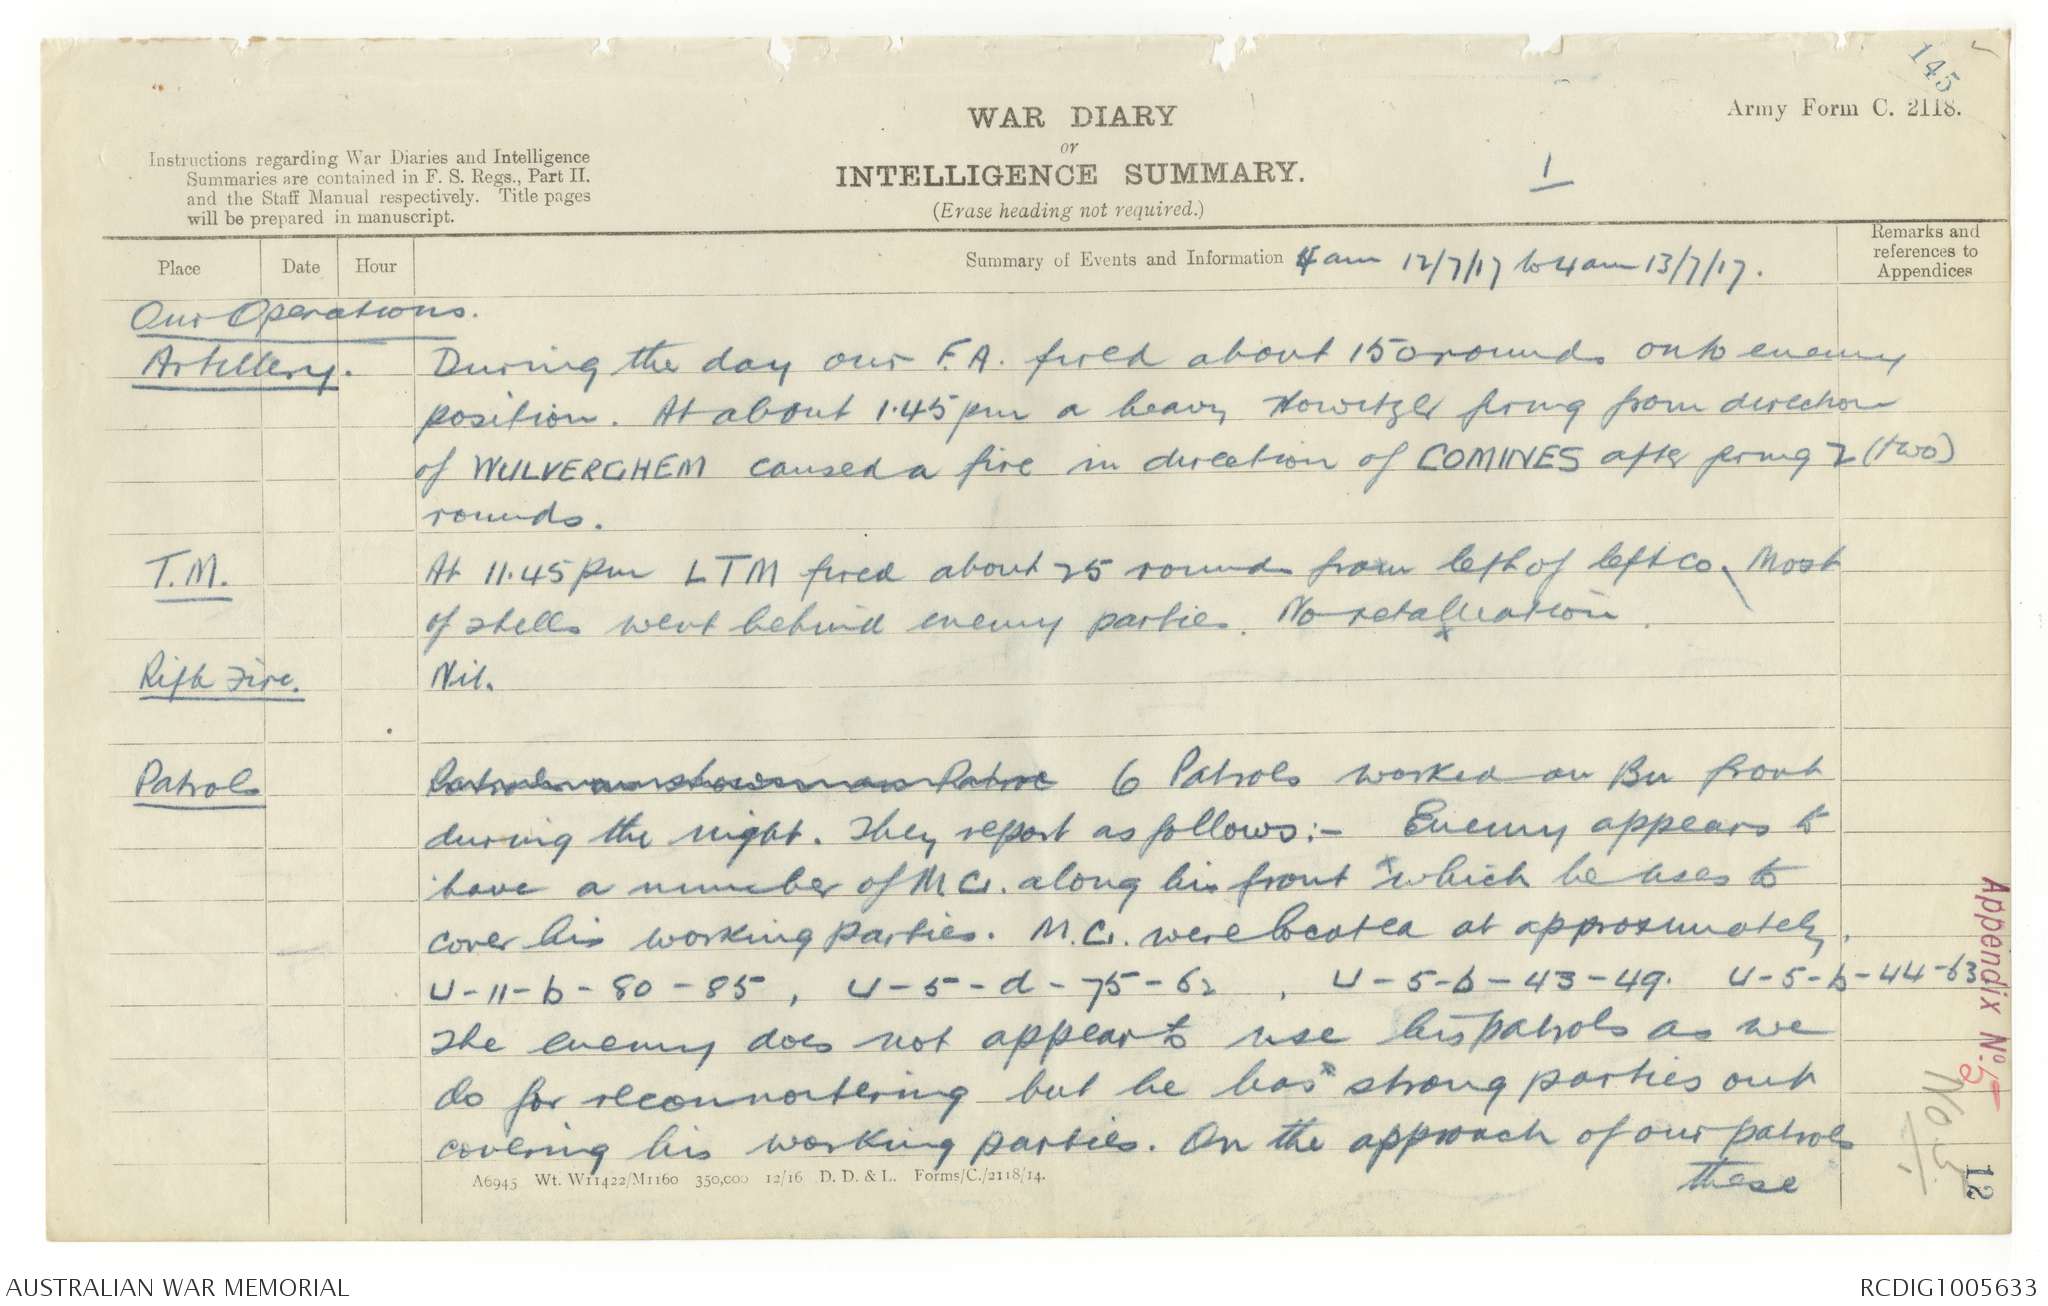 145
Army Form C. 2118.
WAR DIARY
or
INTELLIGENCE SUMMARY.
(Erase heading not required.)
1
Instructions regarding War Diaries and Intelligence
Summaries are contained in F. S. Regs., Part II.
and the Staff Manual respectively. Title pages
will be prepared in manuscript.
Place
Date
Hour
Summary of Events and Information 4 am 12/7/17 to 4 am 13/7/17.
Remarks and
references to
Appendices
Our Operations.
Artillery. During the day our F.A. fired about 150 rounds onto enemy
position. At about 1.45 pm a heavy Howitzer firing from direction
of WULVERGHEM caused a fire in direction of COMINES after firing 2 (two)
rounds.
T.M. At 11.45 pm LTM fired about 25 rounds from left of left Co. Most
of shells went behind enemy parties. No retaliation.
Rifle Fire. Nil.
Patrols 6 Patrols worked on Bn front
during the night. They report as follows:- Enemy appears to
have a number of M.G. along his front which he uses to
cover his working parties. M.G. were located at approximately.
U-11-b-80-85, U-5-d-75-62, U-5-b-43-49. U-5-b-44-63
The enemy does not appear to use his patrols as we
do for reconnoitering but he has strong parties out
covering his working parties. On the approach of our patrols
these
A6945 Wt. W11422/M1160 350,000 12/16 D. D. & L. Forms/C./2118/14.
Appendix No. 5
No 5
12
AUSTRALIAN WAR MEMORIAL
RCDIG1005633